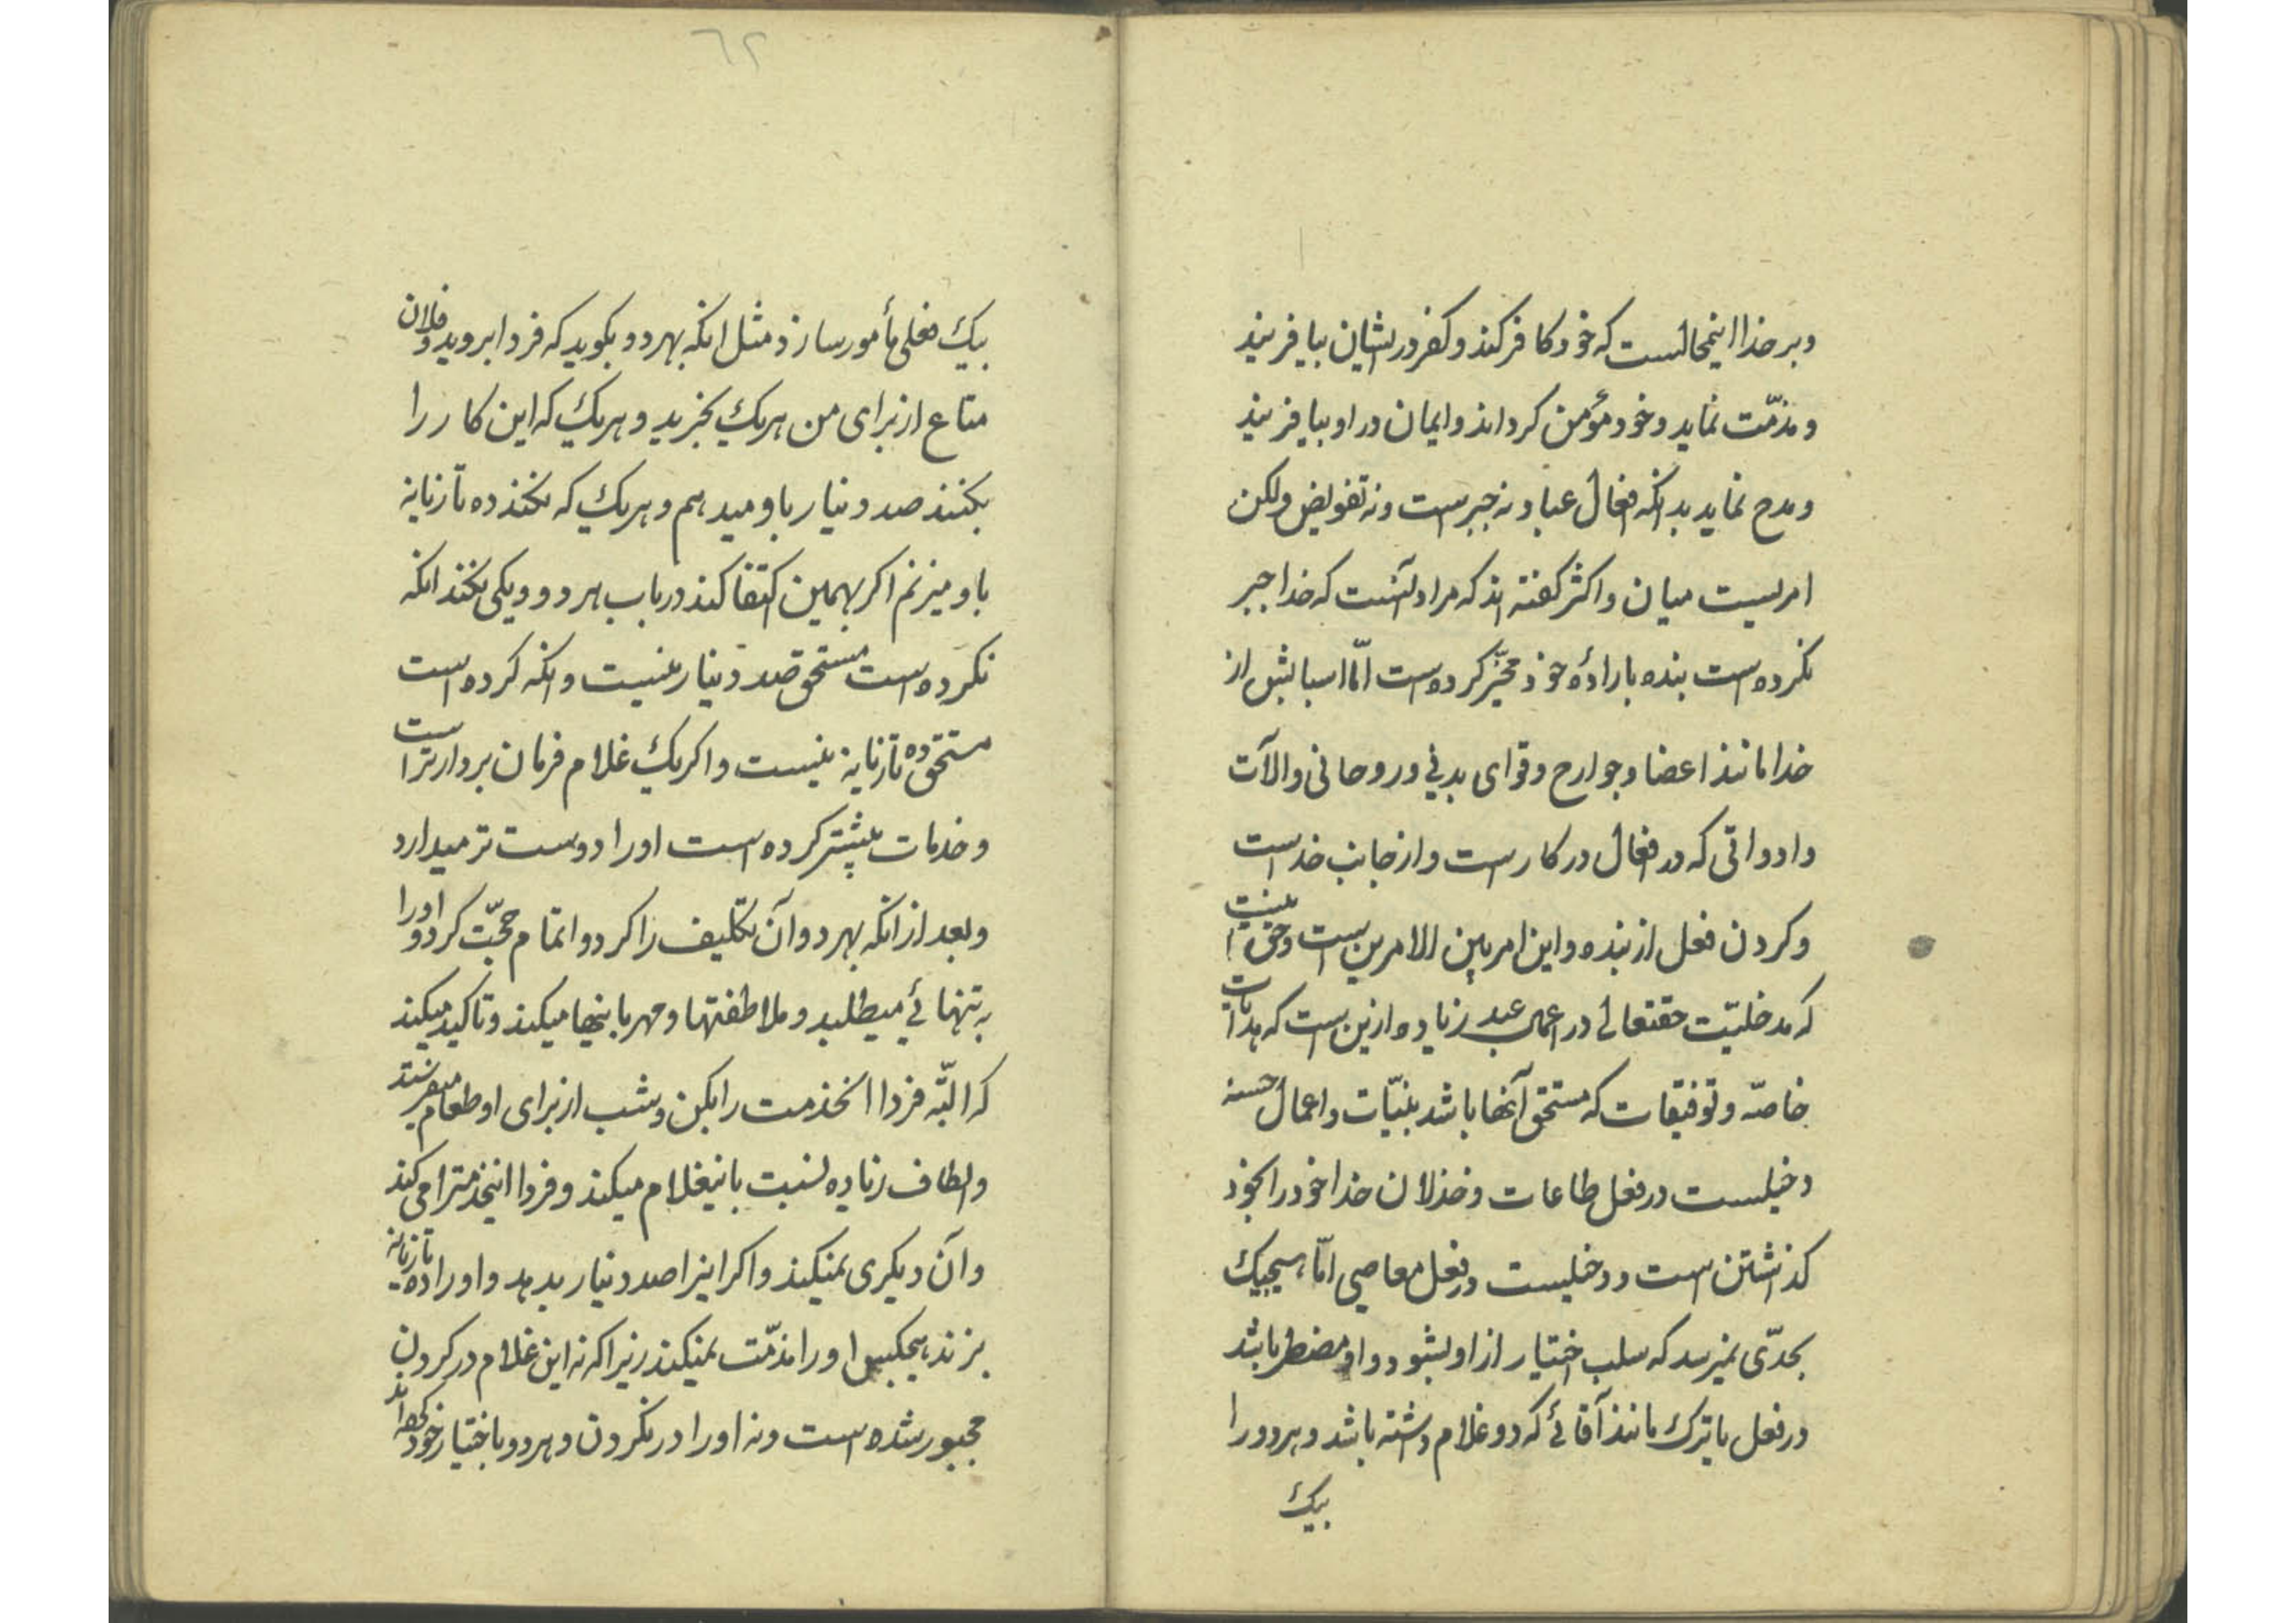 و بر خدا اینمحالست که خود کافر کند و کفر در ایشان بیافریند
و مذمّت نماید و خود مؤمن کرداند و ایمان در او بیافریند
و مدح نماید بدانکه افعال عباد نه جبر است و نه تفویض ولکن
امریست میان و اکثر کفته اند که مراد آنست که خدا جبر
نکرده است بنده باراده خود مخیّر کرده است امّا اسبابش از
خدا مانند اعضا و جوارح و قوای بدنی و روحانی و الآت
و ادواتی که در افعال در کار است و از جانب خداست
و کردن فعل از بنده و این امر بین الامرین است و حق اینست
که مدخلیّت حقتعالی در اعمال عبد زیاده ازین است که هدایات
خاصّه و توفیقات که مستحق آنها باشد بنیّات و اعمال حسنه
دخیلست در فعل طاعات و خذلان خدا خود را بخود
کذاشتن است و دخیلست در فعل معاصی امّا هیچیک
بحدّی نمیرسد که سلب اختیار از او بشود و او مضطر باشد
در فعل یا ترک مانند آقائی که دو غلام داشته باشد و هر دو را
بیک
٦٢
بیک فعلی مأمور سازد مثل انکه بهر دو بکوید که فردا بروید و فلان
متاع از برای من هر یک بخرید و هر یک که این کار را
بکنند صد دینار باو میدهم و هر یک که نکند ده تازیانه
باو میزنم اکر بهمین اکتفا کند در باب هر دو و یکی نکند انکه
نکرده است مستحق صد دینار نیست و انکه کرده است
مستحق ده تازیانه نیست و اکر یک غلام فرمان بردارتر است
و خدمات بیشتر کرده است او را دوست تر میدارد
و بعد از انکه بهر دو آن تکلیف را کرد و اتمام حجّت کرد او را
به تنهائی میطلبد و ملاطفتها و مهربانیها میکند و تاکید میکند
که البتّه فردا انخدمت را بکن و شب از برای او طعام میفرستد
و الطاف زیاده نسبت باینغلام میکند و فردا اینخدمترا می کند
و آن دیکری نمیکند و اکر اینرا صد دینار بدهد و او را ده تازیانه
بزند هیچکس او را مذمّت نمیکند زیرا که نه این غلام در کردن
مجبور شده است و نه او را در نکردن و هر دو باختیار خود کرده اند